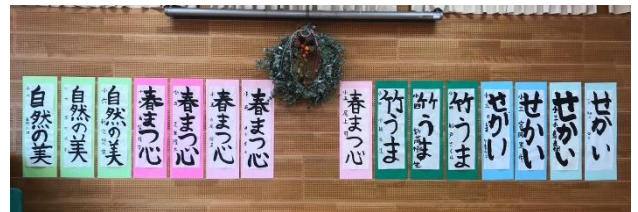 自然の美
自然の美
自然の美
春まつ心
春まつ心
春まつ心
春まつ心
春まつ心
竹うま
竹うま
竹うま
せかい
せかい
せかい
せかい